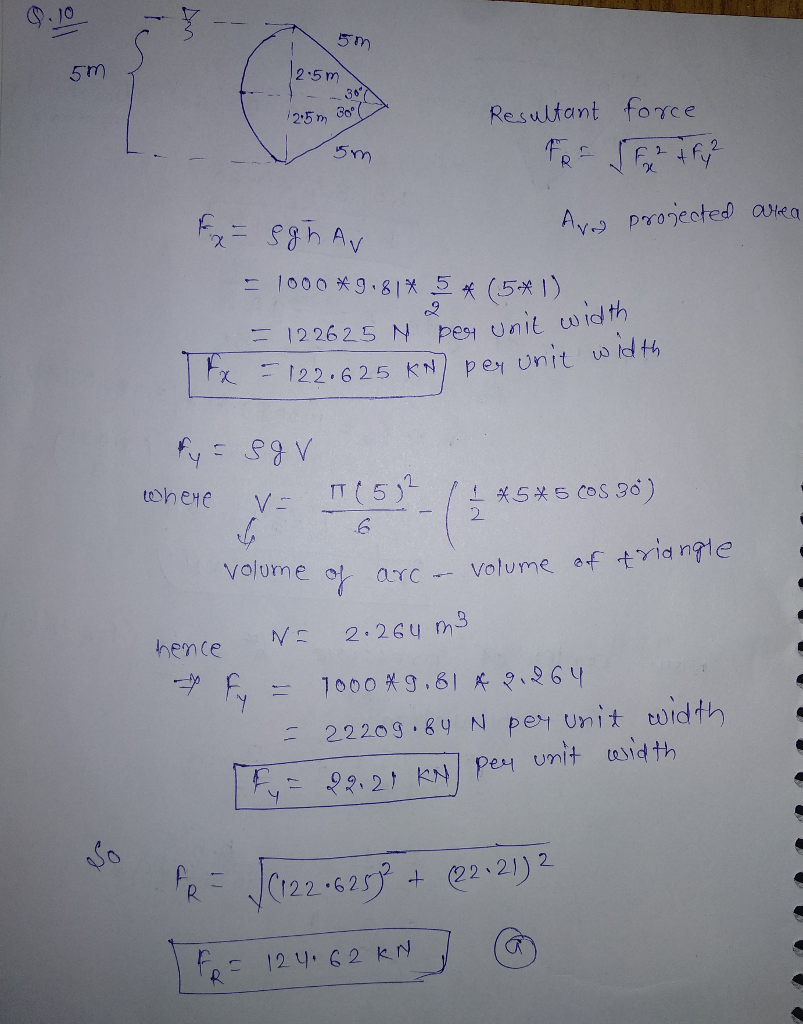 Q.10
5m
5m
2.5m
30°
2.5m 30°
5m
Resultant force
FR = √Fx² + Fy²
Av → projected area
Fx = ρgh̄ Av
= 1000 * 9.81 * 5/2 * (5*1)
= 122625 N per unit width
Fx = 122.625 KN per unit width
Fy = ρgV
where V = π(5)²/6 - (1/2 *5*5 cos 30°)
volume of arc - volume of triangle
hence V = 2.264 m3
⇒ Fy = 1000 * 9.81 * 2.264
= 22209.84 N per unit width
Fy = 22.21 KN per unit width
So
FR = √(122.625)² + (22.21)²
FR = 124.62 KN (a)